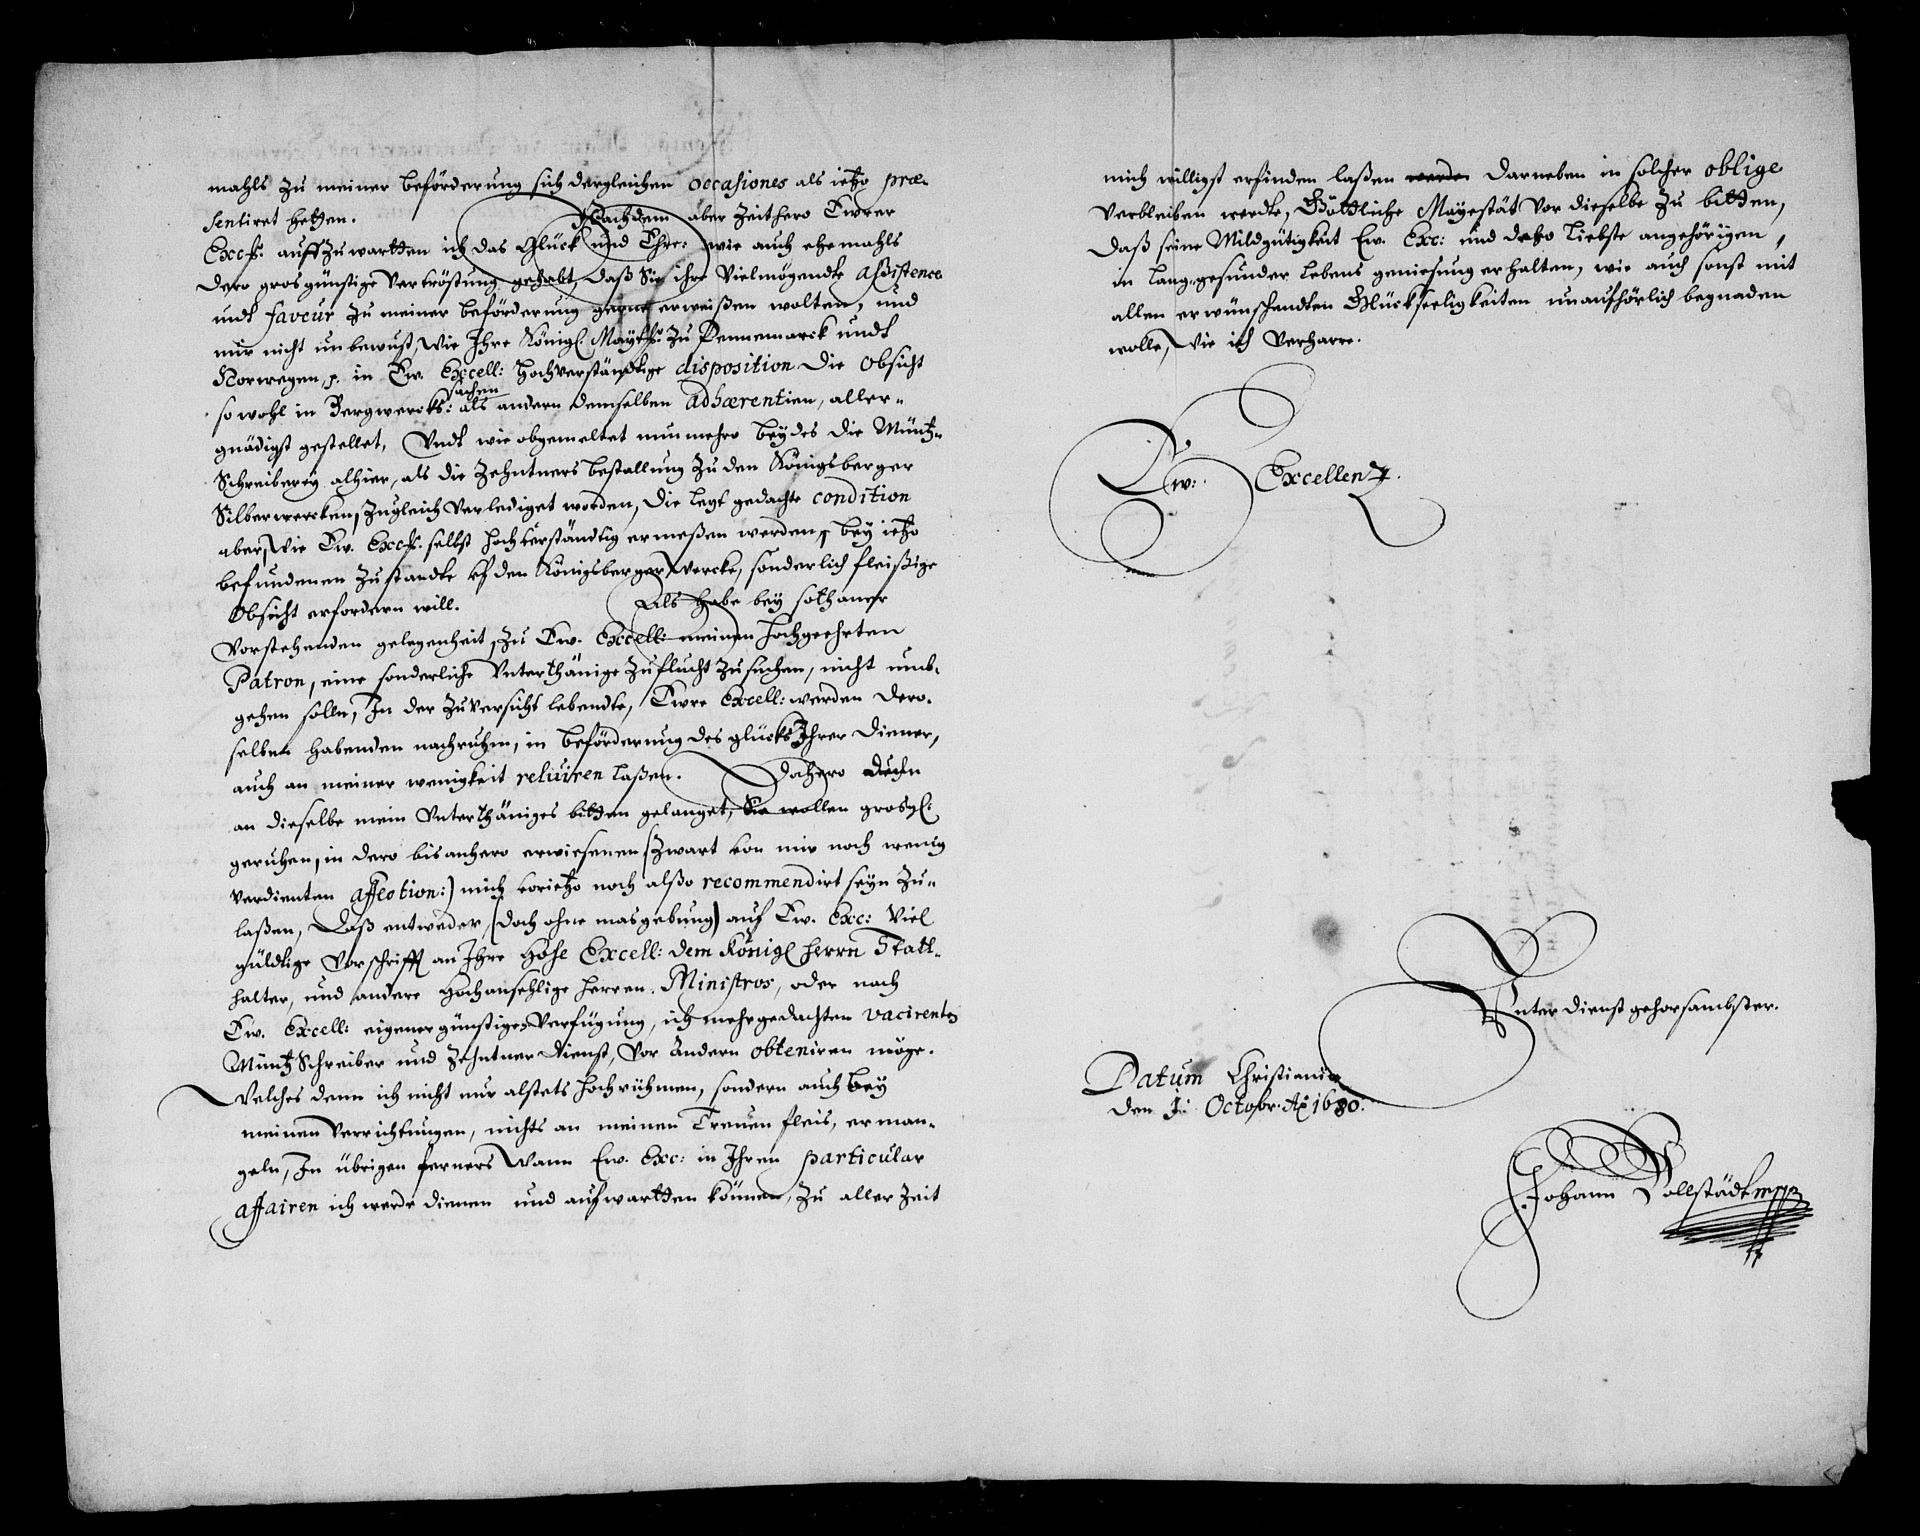 mahls zu meiner beförderung sich dergleichen occasiones als ietzo præ-
sentiret hetten.
Nachdem aber Zeithero Ewrer
Excell. auffzuwartten ich das Glück und Ehre: wie auch ehemahls
dero grosgünstige Vertröstung gehabt, daß Sie ihre Vielmögende assistence
undt faveur zu meiner beförderung gerne erweißen wolten, und
mir nicht unbewust, Wie Ihre Königl. Maytt. zu Dennemarck undt
Norwegen, p. in Ew. Excell: Hochverständtige disposition die Obsicht
sachen
so wohl in Bergwercks: als andern demselben adhærentien, aller-
gnädigst gestellet, Undt wie obgemeltet nunmehro beydes die Müntz-
Schreiberey alhier, als die Zehntners bestallung zu den Königsberger
Silberwercken, zugleich Verlediget worden, die letzt gedachte condition
aber, Wie Ew. Excell. selbst hochverständtig ermeßen werden, bey ietzo
befundenen Zustandte uf den Königsberger Wercke, sonderlich fleißige
Obsicht erfordern will.
Als habe bey sothaner
Vorstehenden gelegenheit, zu Ew. Excell: meinen hochgeehrten
Patron, eine sonderliche Unterthänige Zuflucht zu suchen, nicht umb-
gehen solln, In der Zuversicht lebendte, Ewre Excell: werden dero-
selben habenden nachruhm, in beförderung des glücks Ihrer Diener,
auch an meiner wenigkeit reluiren laßen.
Dahero denn
an dieselbe mein Unterthäniges bitten gelanget, Sie wollen grosgl.
geruhen, in dero bisanhero erwiesenen (zwart von mir noch wenig
verdienten affection:) mich vorietzo noch alßo recommendirt seyn zu-
laßen, Daß entweder, (doch ohne masgebung) auf Ew. Exc: Viel
gültige Vorschrifft an Ihre Hohe Excell: dem Königl Herrn Statt-
halter, und andere Hochansehlige Herren Ministros, oder nach
Ew. Excell: eigener günstiger Verfügung, ich mehrgedachten vacirenten
MüntzSchreiber und Zehntner dienst, Vor andern obteniren möge.
Welches denn ich nicht nur alstets hochrühmen, sondern auch bey
meinen Verrichtungen, nichts an meinen Treuen fleis, erman-
geln, In übrigen ferners Wann Ew. Exc: in Ihren particular
affairen ich werde dienen und aufwartten können, zu aller Zeit
mich willigst erfinden laßen werden darneben in solcher oblige
Verbleiben werdte, Göttliche Mayestät Vor dieselbe zu bitten,
daß seine Mildgütigkeit Ew. Exc: und dero liebste angehörigen,
in lang, gesunder Lebens geniesung erhalten, wie auch sonst mit
allen erwünschendten Glückseeligkeiten unaufhörlich begnaden
wolle, Wie ich Verharre.
Ew. Excellentz.
Unterdienstgehorsambster.
Datum Christiania
den 1: Octobr. Ao 1680.
Johann Vollstädt mpp